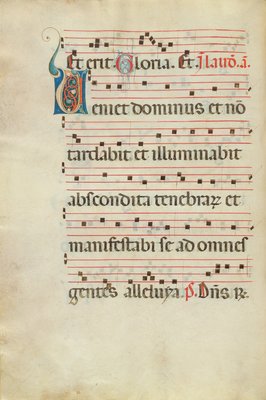 Et erit. Gloria. Et. In lauð. a.
Ueniet dominus et nō
tardabit et illuminabit
abscondita tenebraꝝ et
manifestabi se ad omnes
gentes alleluya. p̄. Dn̄s re